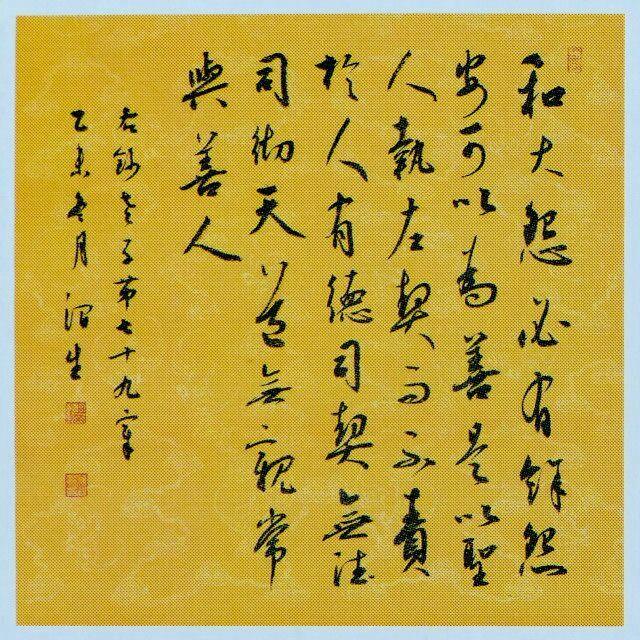 和大怨必有餘怨
安可以為善是以聖
人執左契而不責
於人有德司契無德
司彻天道無親常
與善人
右錄老子第七十九章
乙未冬月